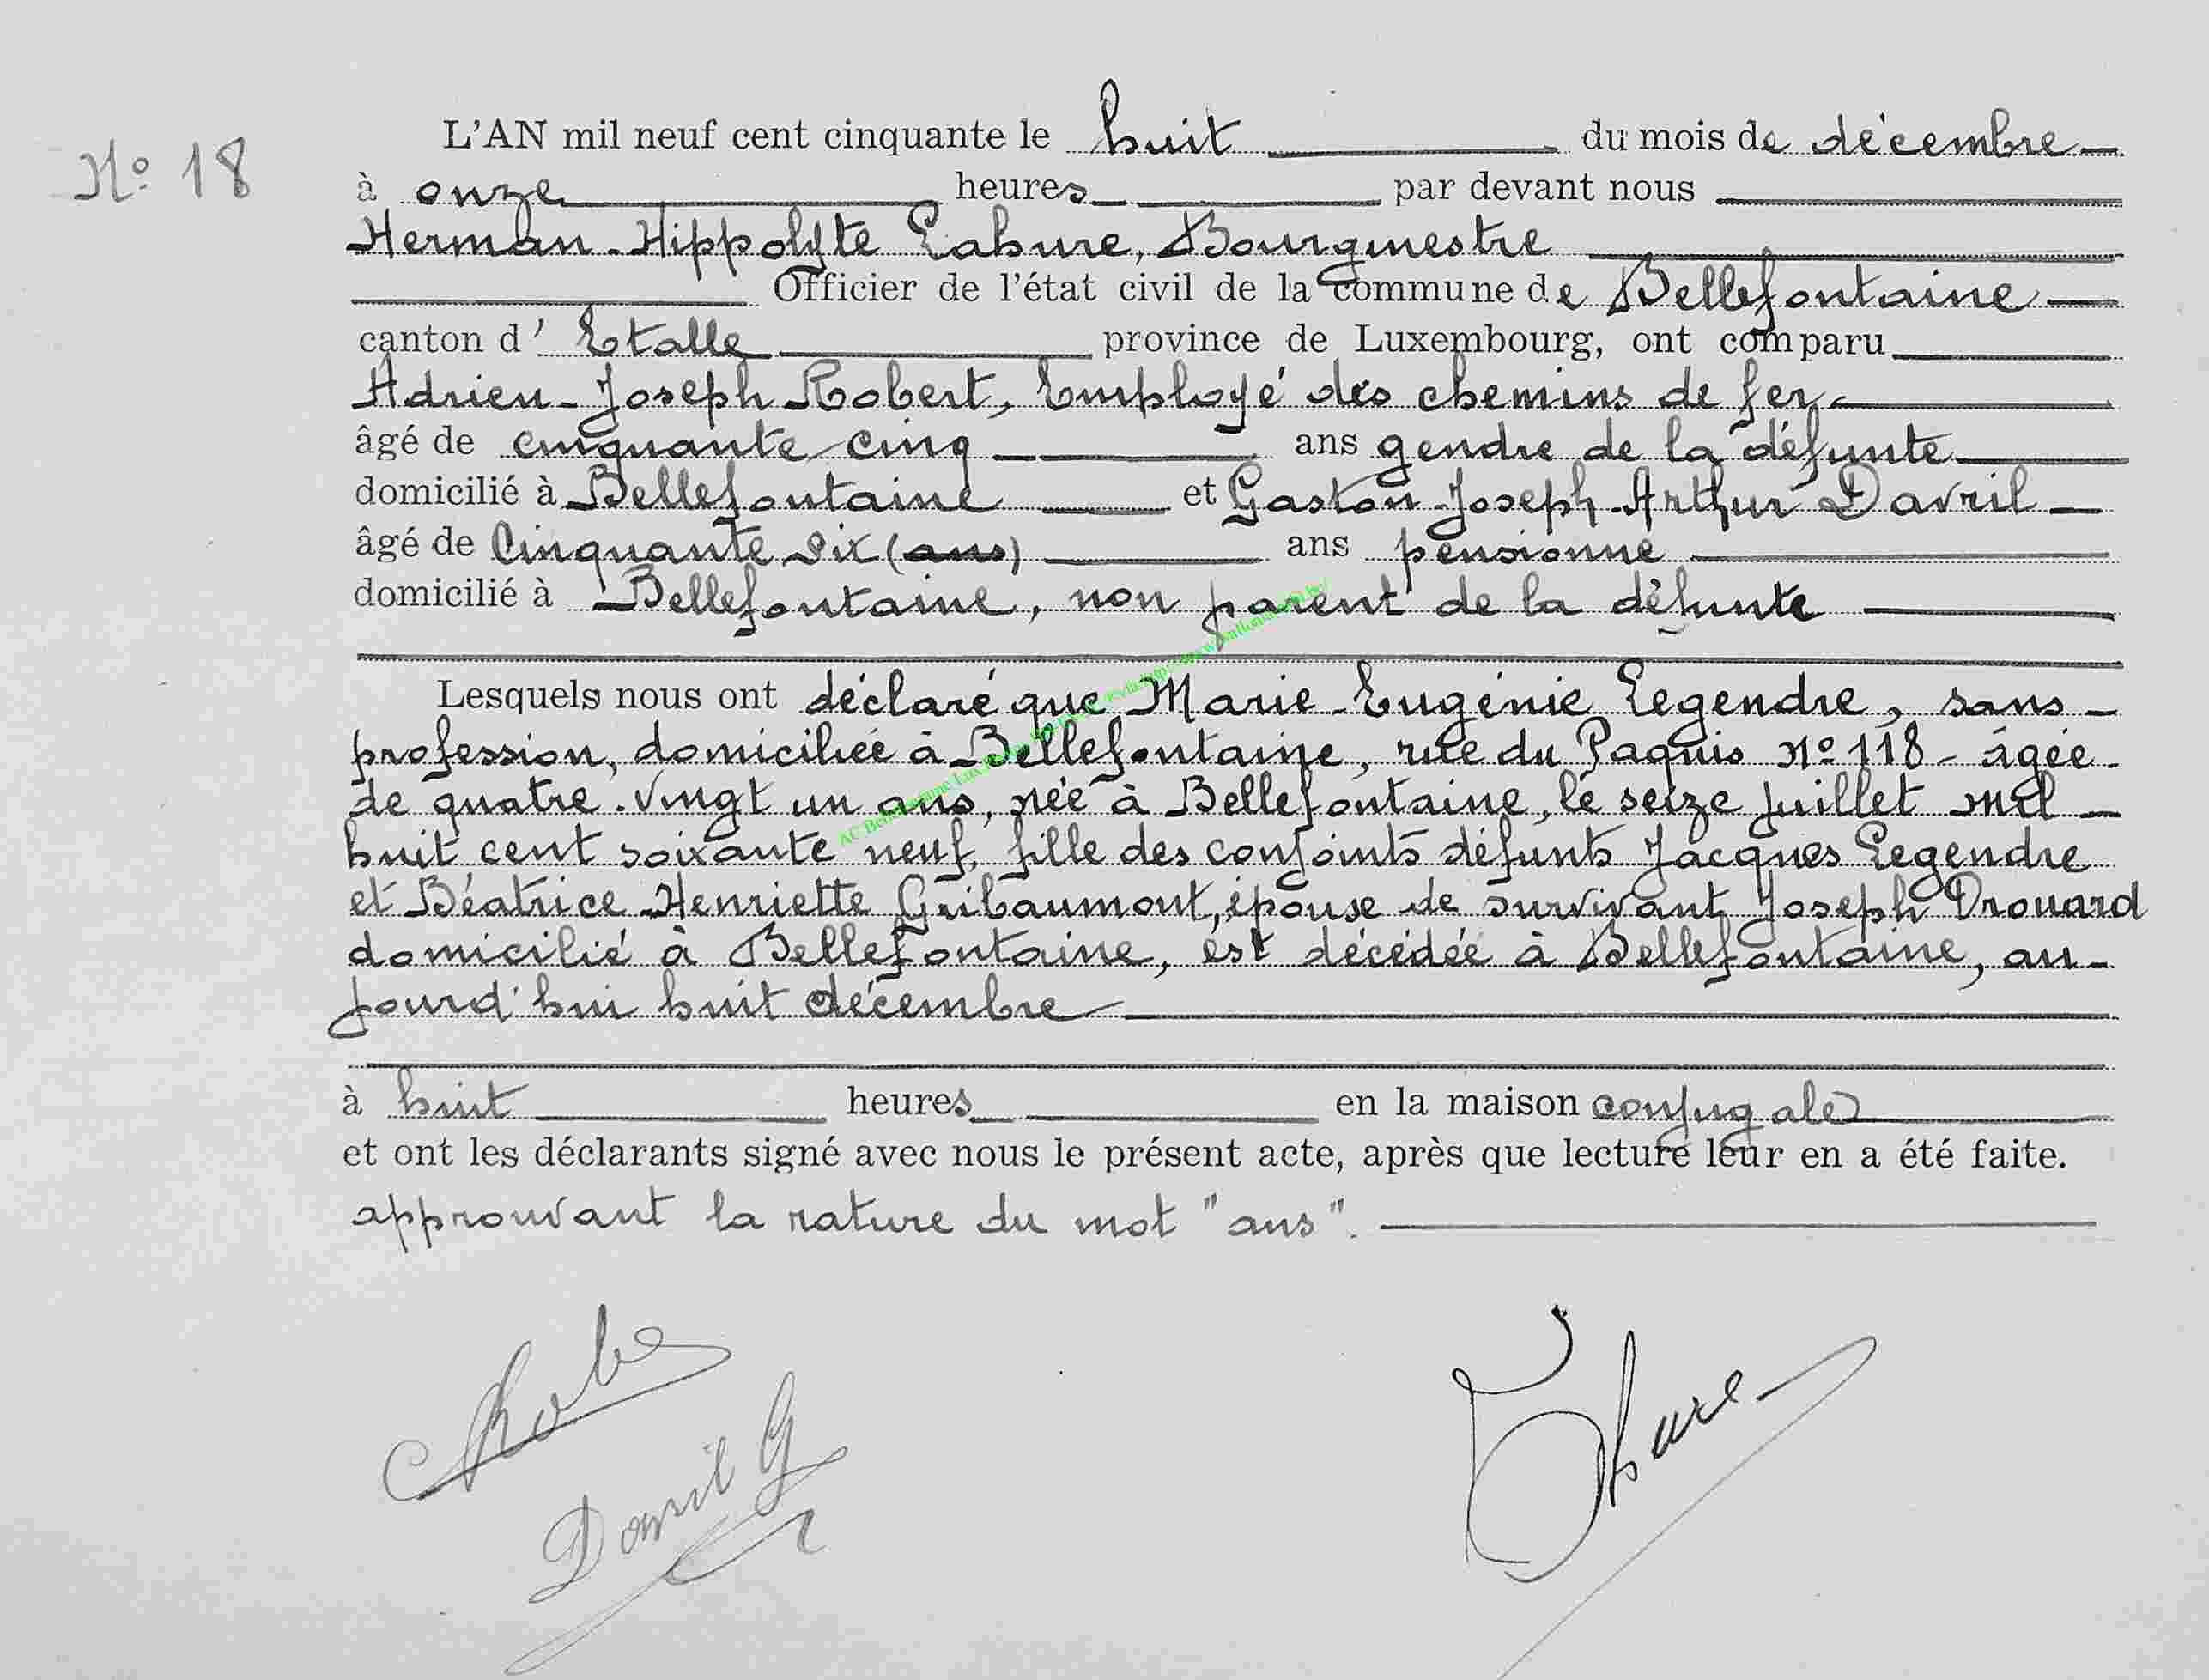 N° 18
L'AN mil neuf cent cinquante le huit du mois de décembre
à onze heures par devant nous
Herman-Hippolyte Lahure, Bourgmestre
Officier de l'état civil de la commune de Bellefontaine
canton d' Etalle province de Luxembourg, ont comparu
Adrien-Joseph Robert, Employé des chemins de fer
âgé de cinquante cinq ans gendre de la défunte
domicilié à Bellefontaine et Gaston-Joseph-Arthur Davril
âgé de Cinquante six (ans) ans pensionné
domicilié à Bellefontaine, non parent de la défunte
Lesquels nous ont déclaré que Marie-Eugénie Legendre, sans
profession, domiciliée à Bellefontaine, rue du Paquis N° 118 - âgée
de quatre-vingt un ans, née à Bellefontaine, le seize juillet mil
huit cent soixante neuf, fille des conjoints défunts Jacques Legendre
et Béatrice Henriette Gribaumont, épouse de survivant Joseph Drouard
domicilié à Bellefontaine, est décédée à Bellefontaine, au-
jourd'hui huit décembre
à huit heures en la maison conjugale
et ont les déclarants signé avec nous le présent acte, après que lecture leur en a été faite.
approuvant la rature du mot "ans".
Davril G